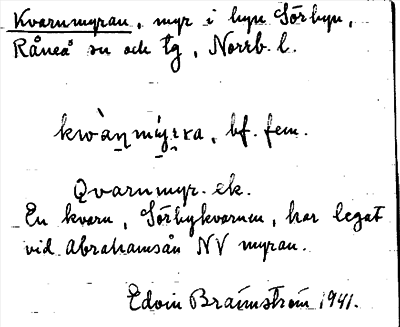 Kvarnmyran, myr i byn Sörbyn,
Råneå sn och tg, Norrb. l.
kwàn̠mýrra, bf. fem.
Qvarnmyr. ek.
En kvarn, Sörbykvarnen, har legat
vid Abrahamsån NV myran.
Edvin Brännström 1941.